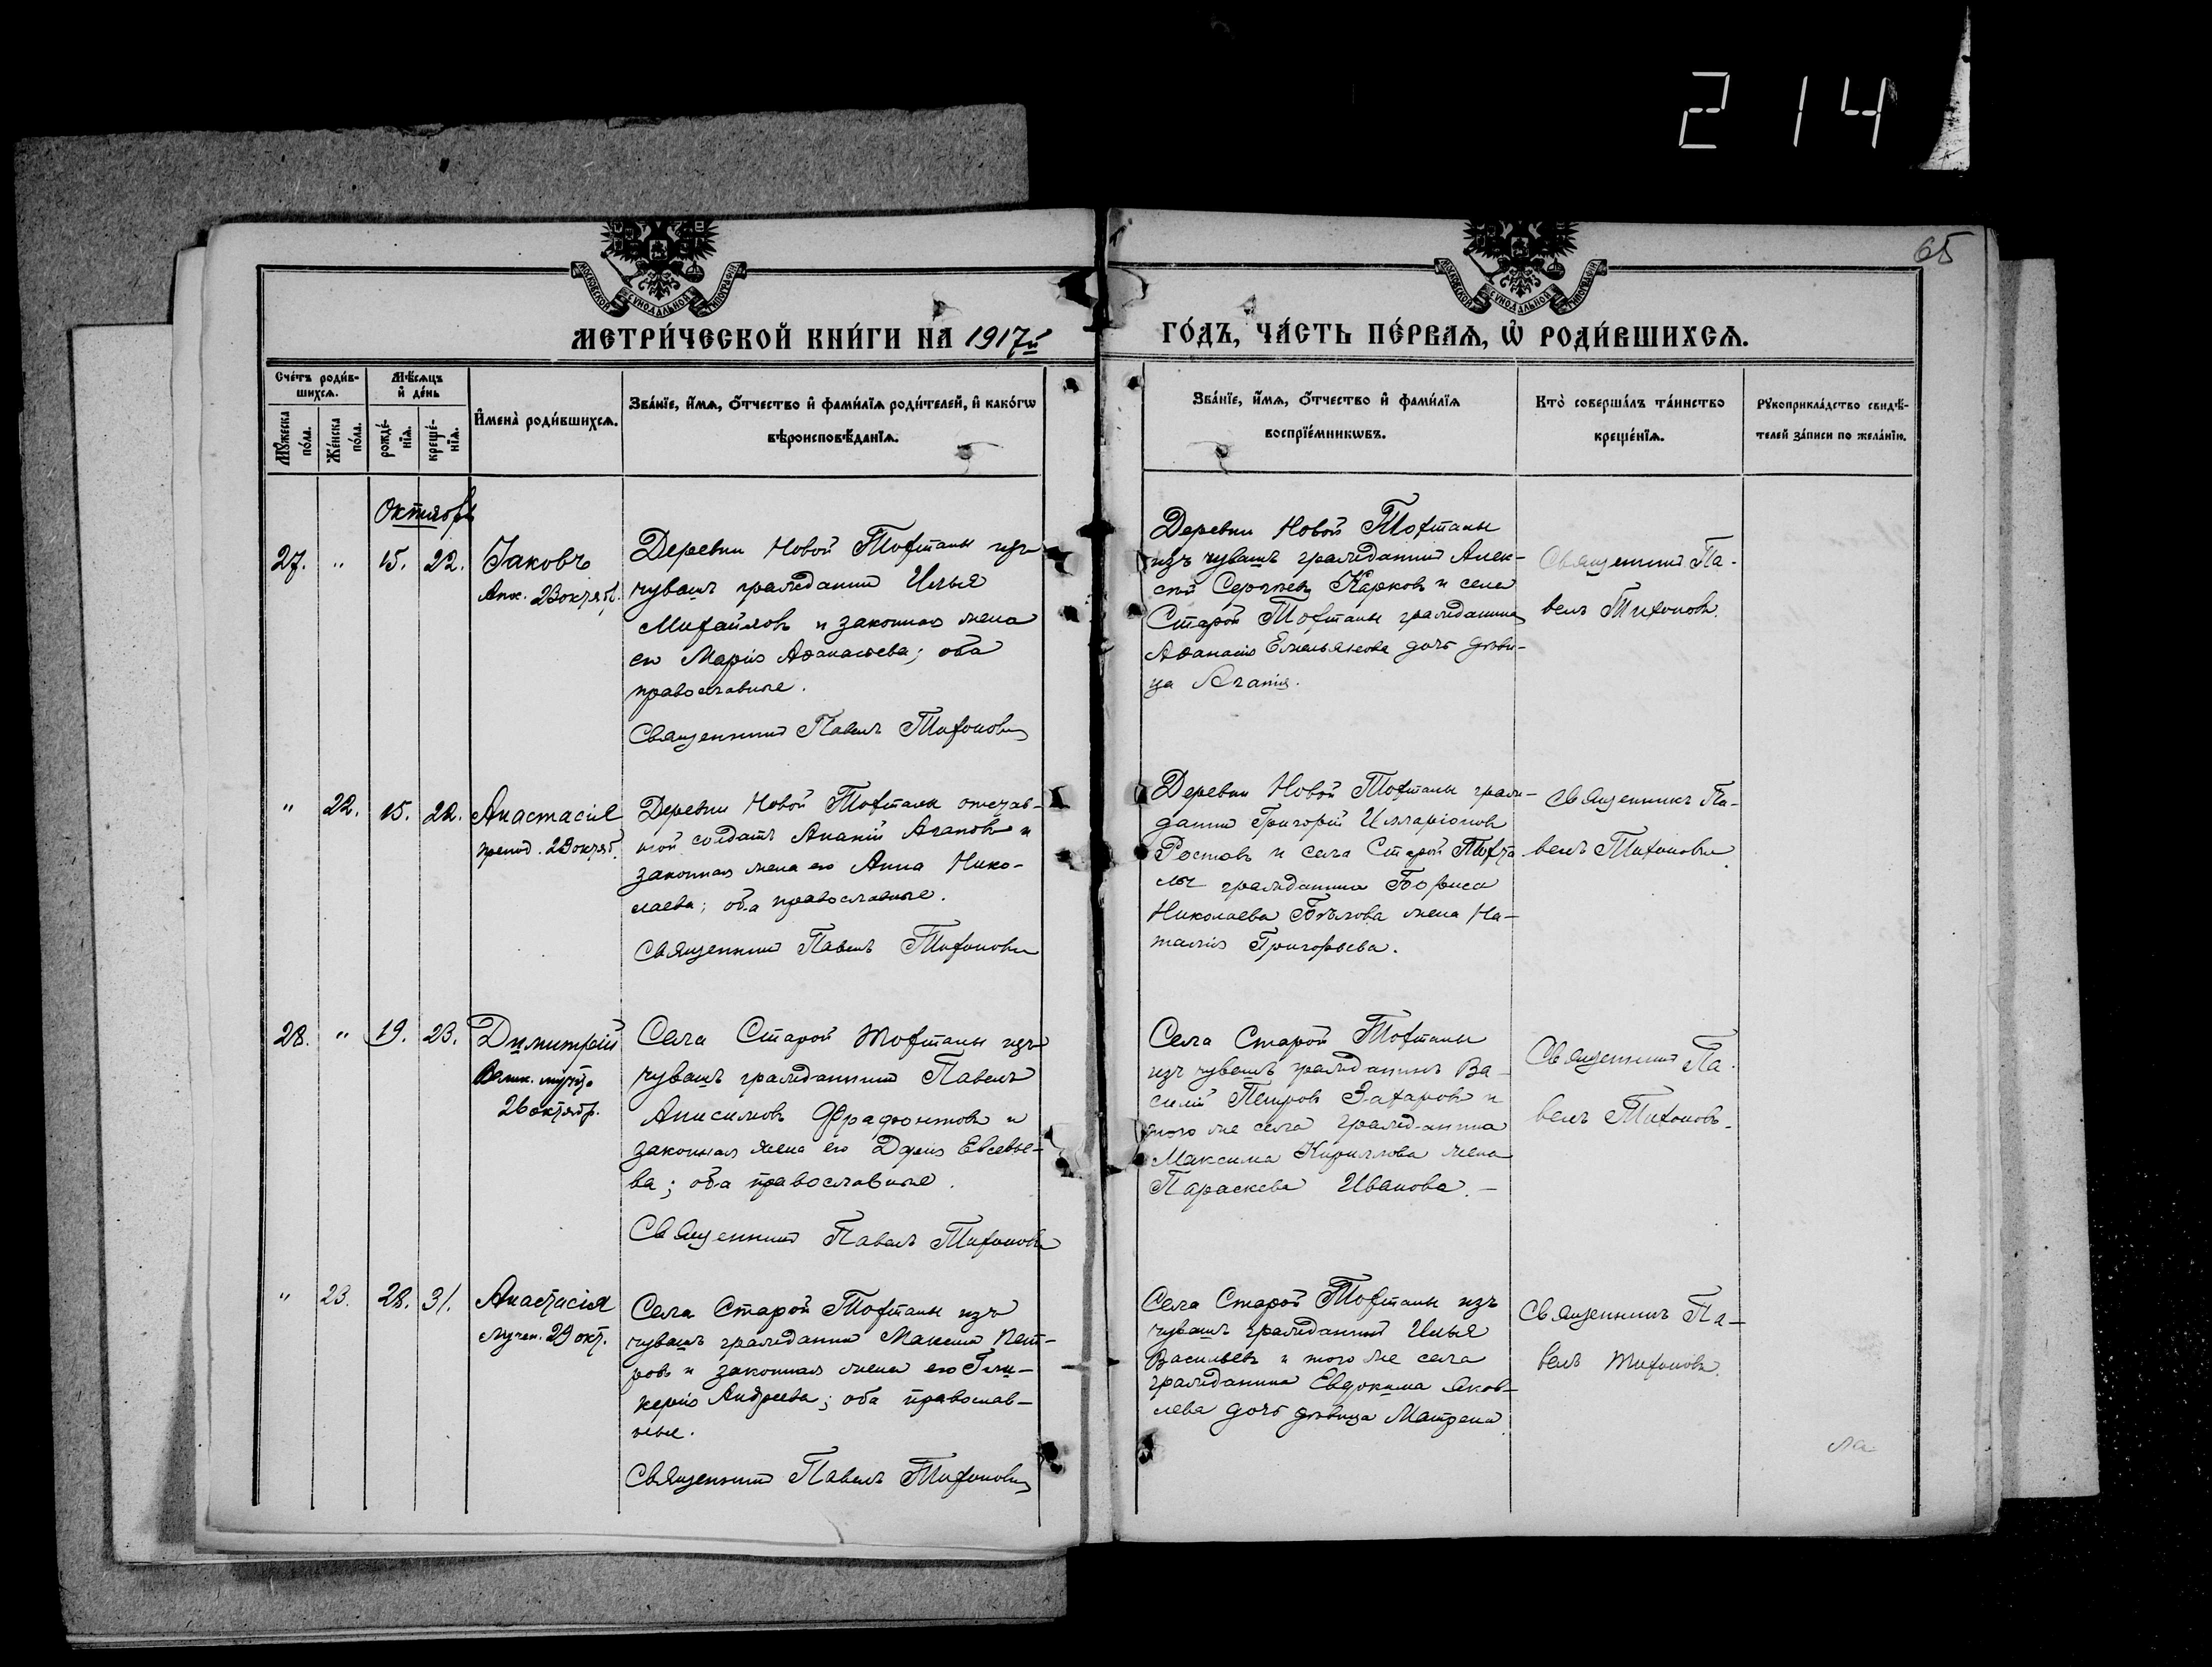 2 14
65
МОСКОВСКОЙ СѴНОДАЛЬНОЙ ТИПОГРАФІИ
МОСКОВСКОЙ СѴНОДАЛЬНОЙ ТИПОГРАФІИ
МЕТРИ́ЧЕСКОЙ КНИ́ГИ НА 1917й
ГО́ДЪ, ЧА́СТЬ ПЕ́РВАЯ, Ѽ РОДИ́ВШИХСЯ.
Сче́тъ роди́в-
шихся.
Мѣ́сяцъ
и҆ де́нь
Мꙋ́жеска
по́ла.
Же́нска
по́ла.
рожде́-
нїя.
креще́-
нїя.
И҆мена̀ роди́вшихся.
Зва́нїе, и҆́мя, ѻ҆́тчество и҆ фами́лїя роди́телей, и҆ како́гѡ
вѣроисповѣ́данїя.
Зва́нїе, и҆́мя, ѻ҆́тчество и҆ фами́лїя
воспрїе́мникѡвъ.
Кто̀ соверша́лъ та́инство
креще́нїя.
Рꙋкоприкла́дство свидѣ́-
телей за́писи по жела́нїю.
Октябрь
27. " 15. 22. Іаковъ
Апос. 23 октяб.
Деревни Новой Тохталы изъ
чувашъ гражданинъ Илья
Михайловъ и законная жена
его Марія Аѳанасьева; оба
православные.
Священникъ Павелъ Тихоновъ
Деревни Новой Тохталы
изъ чувашъ гражданинъ Алек-
сѣй Сергѣевъ Карковъ и села
Старой Тохталы гражданина
Аѳанасія Емельянова дочь дѣви-
ца Агапія.
Священникъ Па-
велъ Тихоновъ.
" 22. 15. 22. Анастасія
препод. 29 октяб.
Деревни Новой Тохталы отстав-
ной солдатъ Ананій Агаповъ и
законная жена его Анна Нико-
лаева; оба православные.
Священникъ Павелъ Тихоновъ
Деревни Новой Тохталы граж-
данинъ Григорій Илларіоновъ
Ростовъ и села Старой Тохта
лы гражданина Бориса
Николаева Бѣлова жена На-
талія Григорьева.
Священникъ Па-
велъ Тихоновъ.
28. " 19. 23. Димитрій
Велик. муч.
26 октябр.
Села Старой Тохталы изъ
чувашъ гражданинъ Павелъ
Анисимовъ и
законная жена его Дарія Евсевье-
ва; оба православные.
Священникъ Павелъ Тихоновъ
Села Старой Тохталы
изъ чувашъ гражданинъ Ва-
силій Петровъ Захаровъ и
того же села гражданина
Максима Кириллова жена
Параскева Иванова. —
Священникъ Па-
велъ Тихоновъ.
" 23. 28. 31. Анастасія
Мучен. 29 окт.
Села Старой Тохталы изъ
чувашъ гражданинъ Максимъ Пет-
ровъ и законная жена его Гли-
керія Андреева; оба православ-
ные.
Священникъ Павелъ Тихоновъ
Села Старой Тохталы изъ
чувашъ гражданинъ Илья
Васильевъ и того же села
гражданина Евдокима Яков-
лева дочь дѣвица Матрена
Священникъ Па-
велъ Тихоновъ.